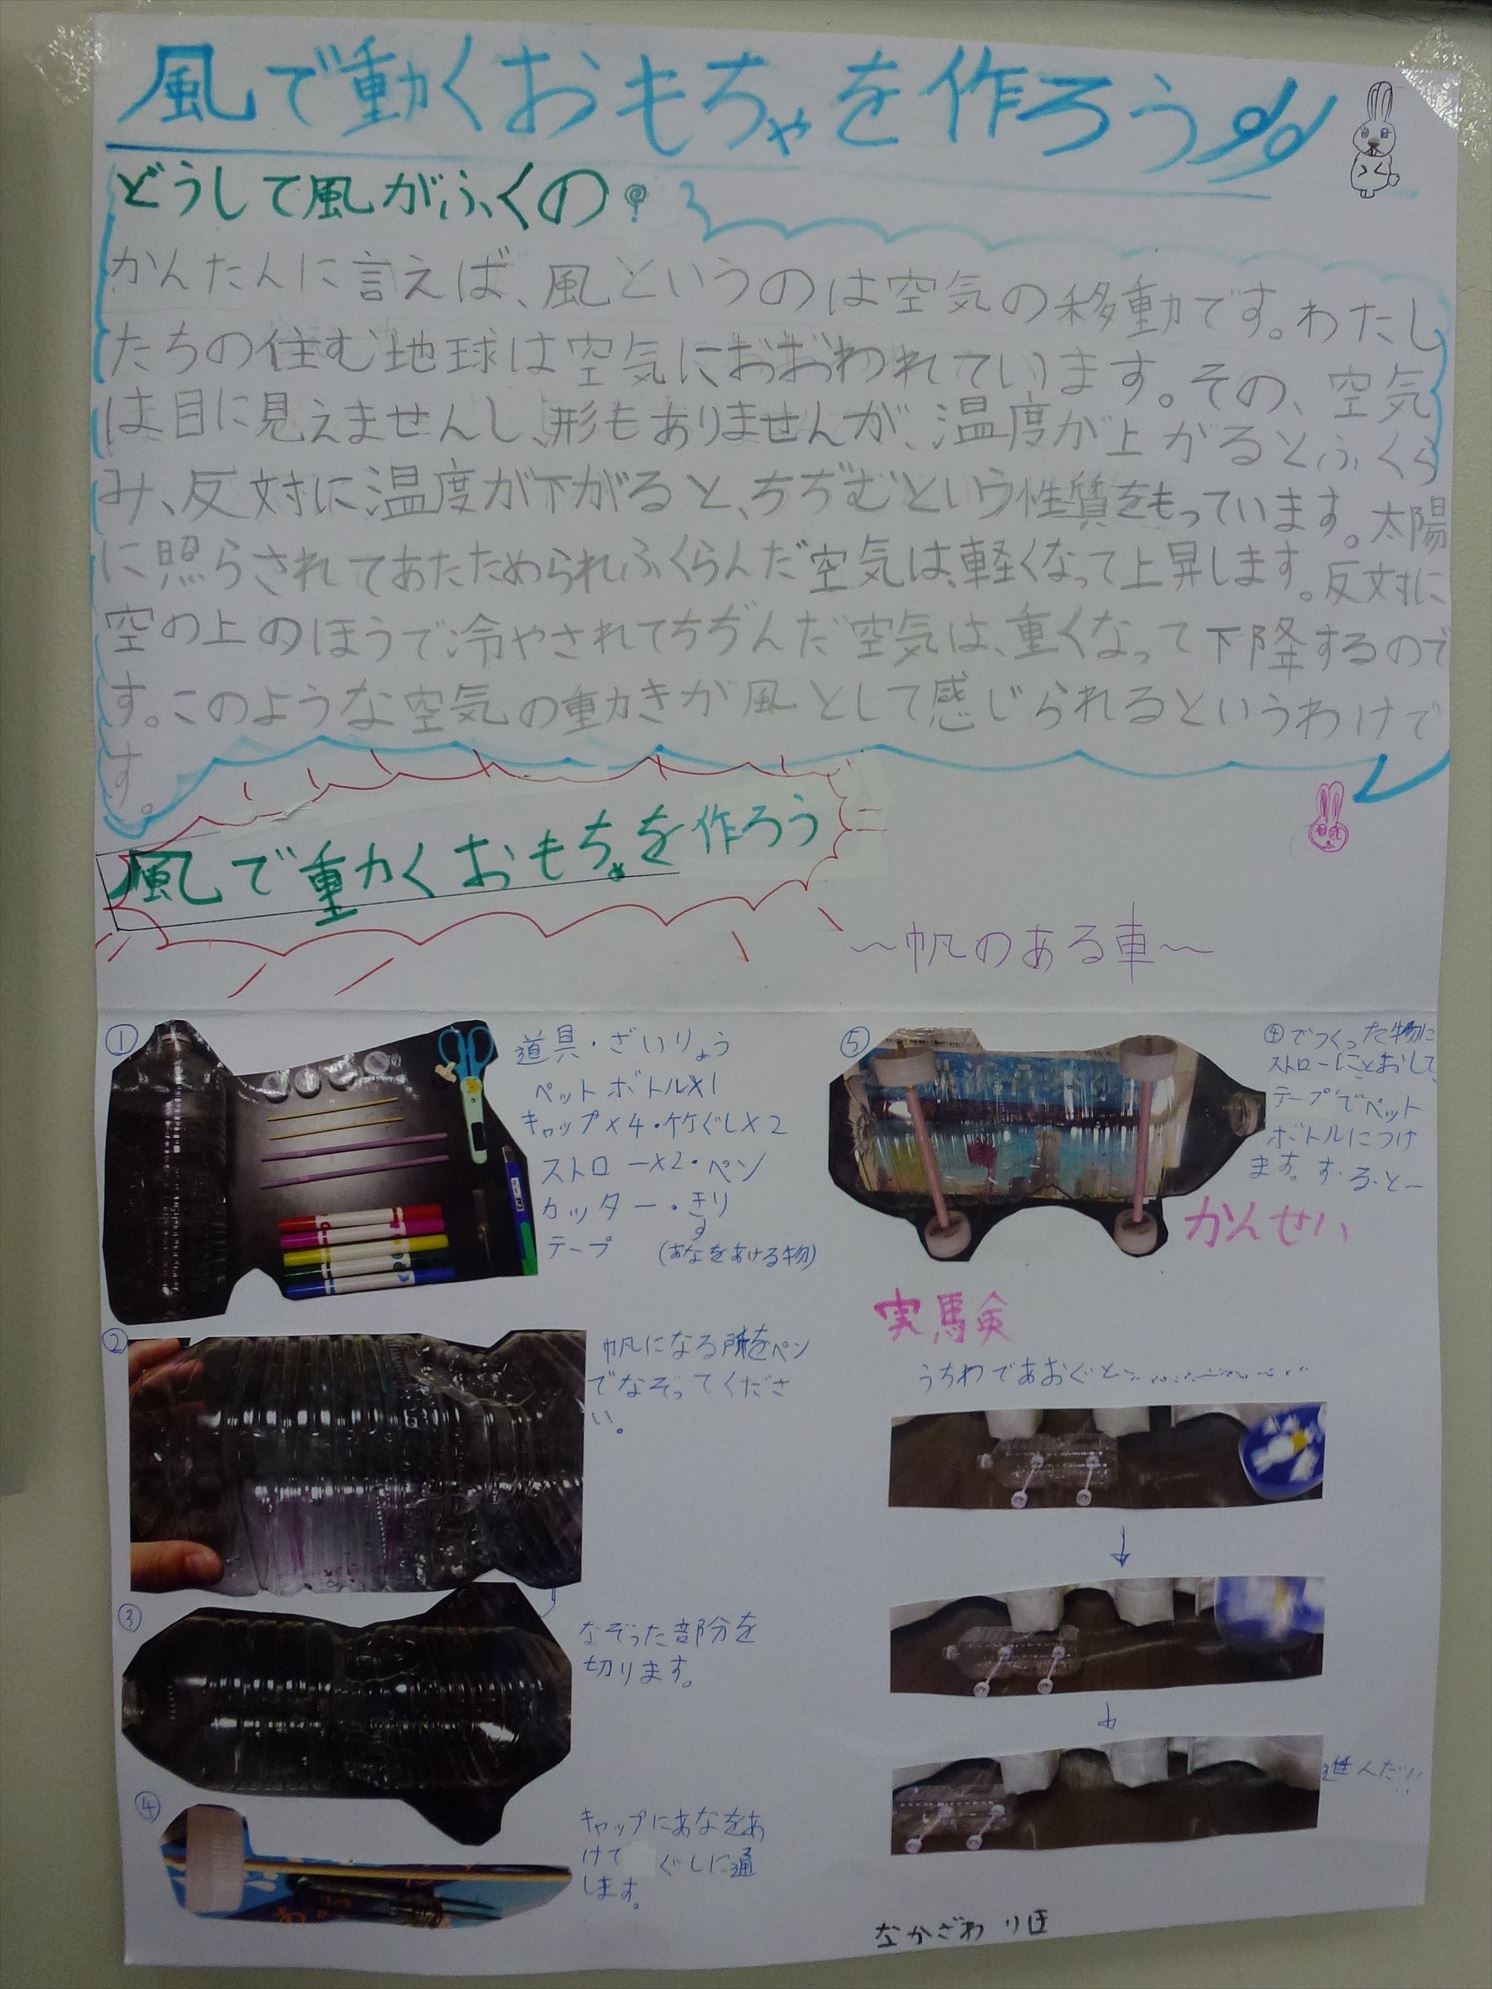 風で動くおもちゃを作ろう!!
どうして風がふくの?
かんたんに言えば、風というのは空気の移動です。わたし
たちの住む地球は空気におおわれています。その、空気
は目に見えませんし、形もありませんが、温度が上がるとふくら
み、反対に温度が下がると、ちぢむという性質をもっています。太陽
に照らされてあたためられふくらんだ空気は、軽くなって上昇します。反対に
空の上のほうで冷やされてちぢんだ空気は、重くなって下降するので
す。このような空気の動きが風として感じられるというわけで
す。
風で動くおもちゃを作ろう
〜帆のある車〜
①
道具・ざいりょう
ペットボトル×1
キャップ×4・竹ぐし×2
ストロー×2・ペン
カッター・きり
テープ
(あなをあける物)
②
帆になる所をペン
でなぞってくださ
い。
③
なぞった部分を
切ります。
④
キャップにあなをあ
けて ぐしに通
します。
⑤
④でつくった物に
ストローにとおして、
テープでペット
ボトルにつけ
ます。す・る・とー
かんせい
実験
うちわであおぐと…………
↓
↓
進んだ!!
なかざわ りほ